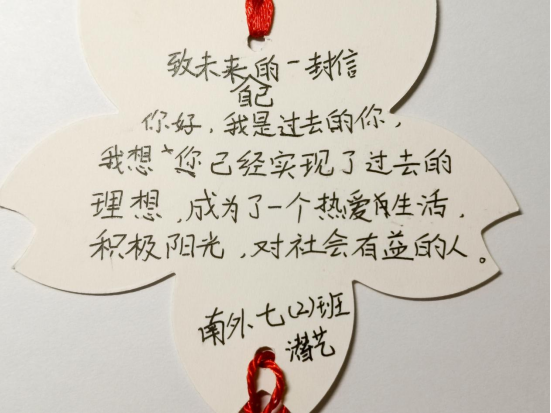 致未来自己的一封信
你好，我是过去的你，
我想您已经实现了过去的
理想，成为了一个热爱生活，
积极阳光，对社会有益的人。
南外七(2)班
潜艺